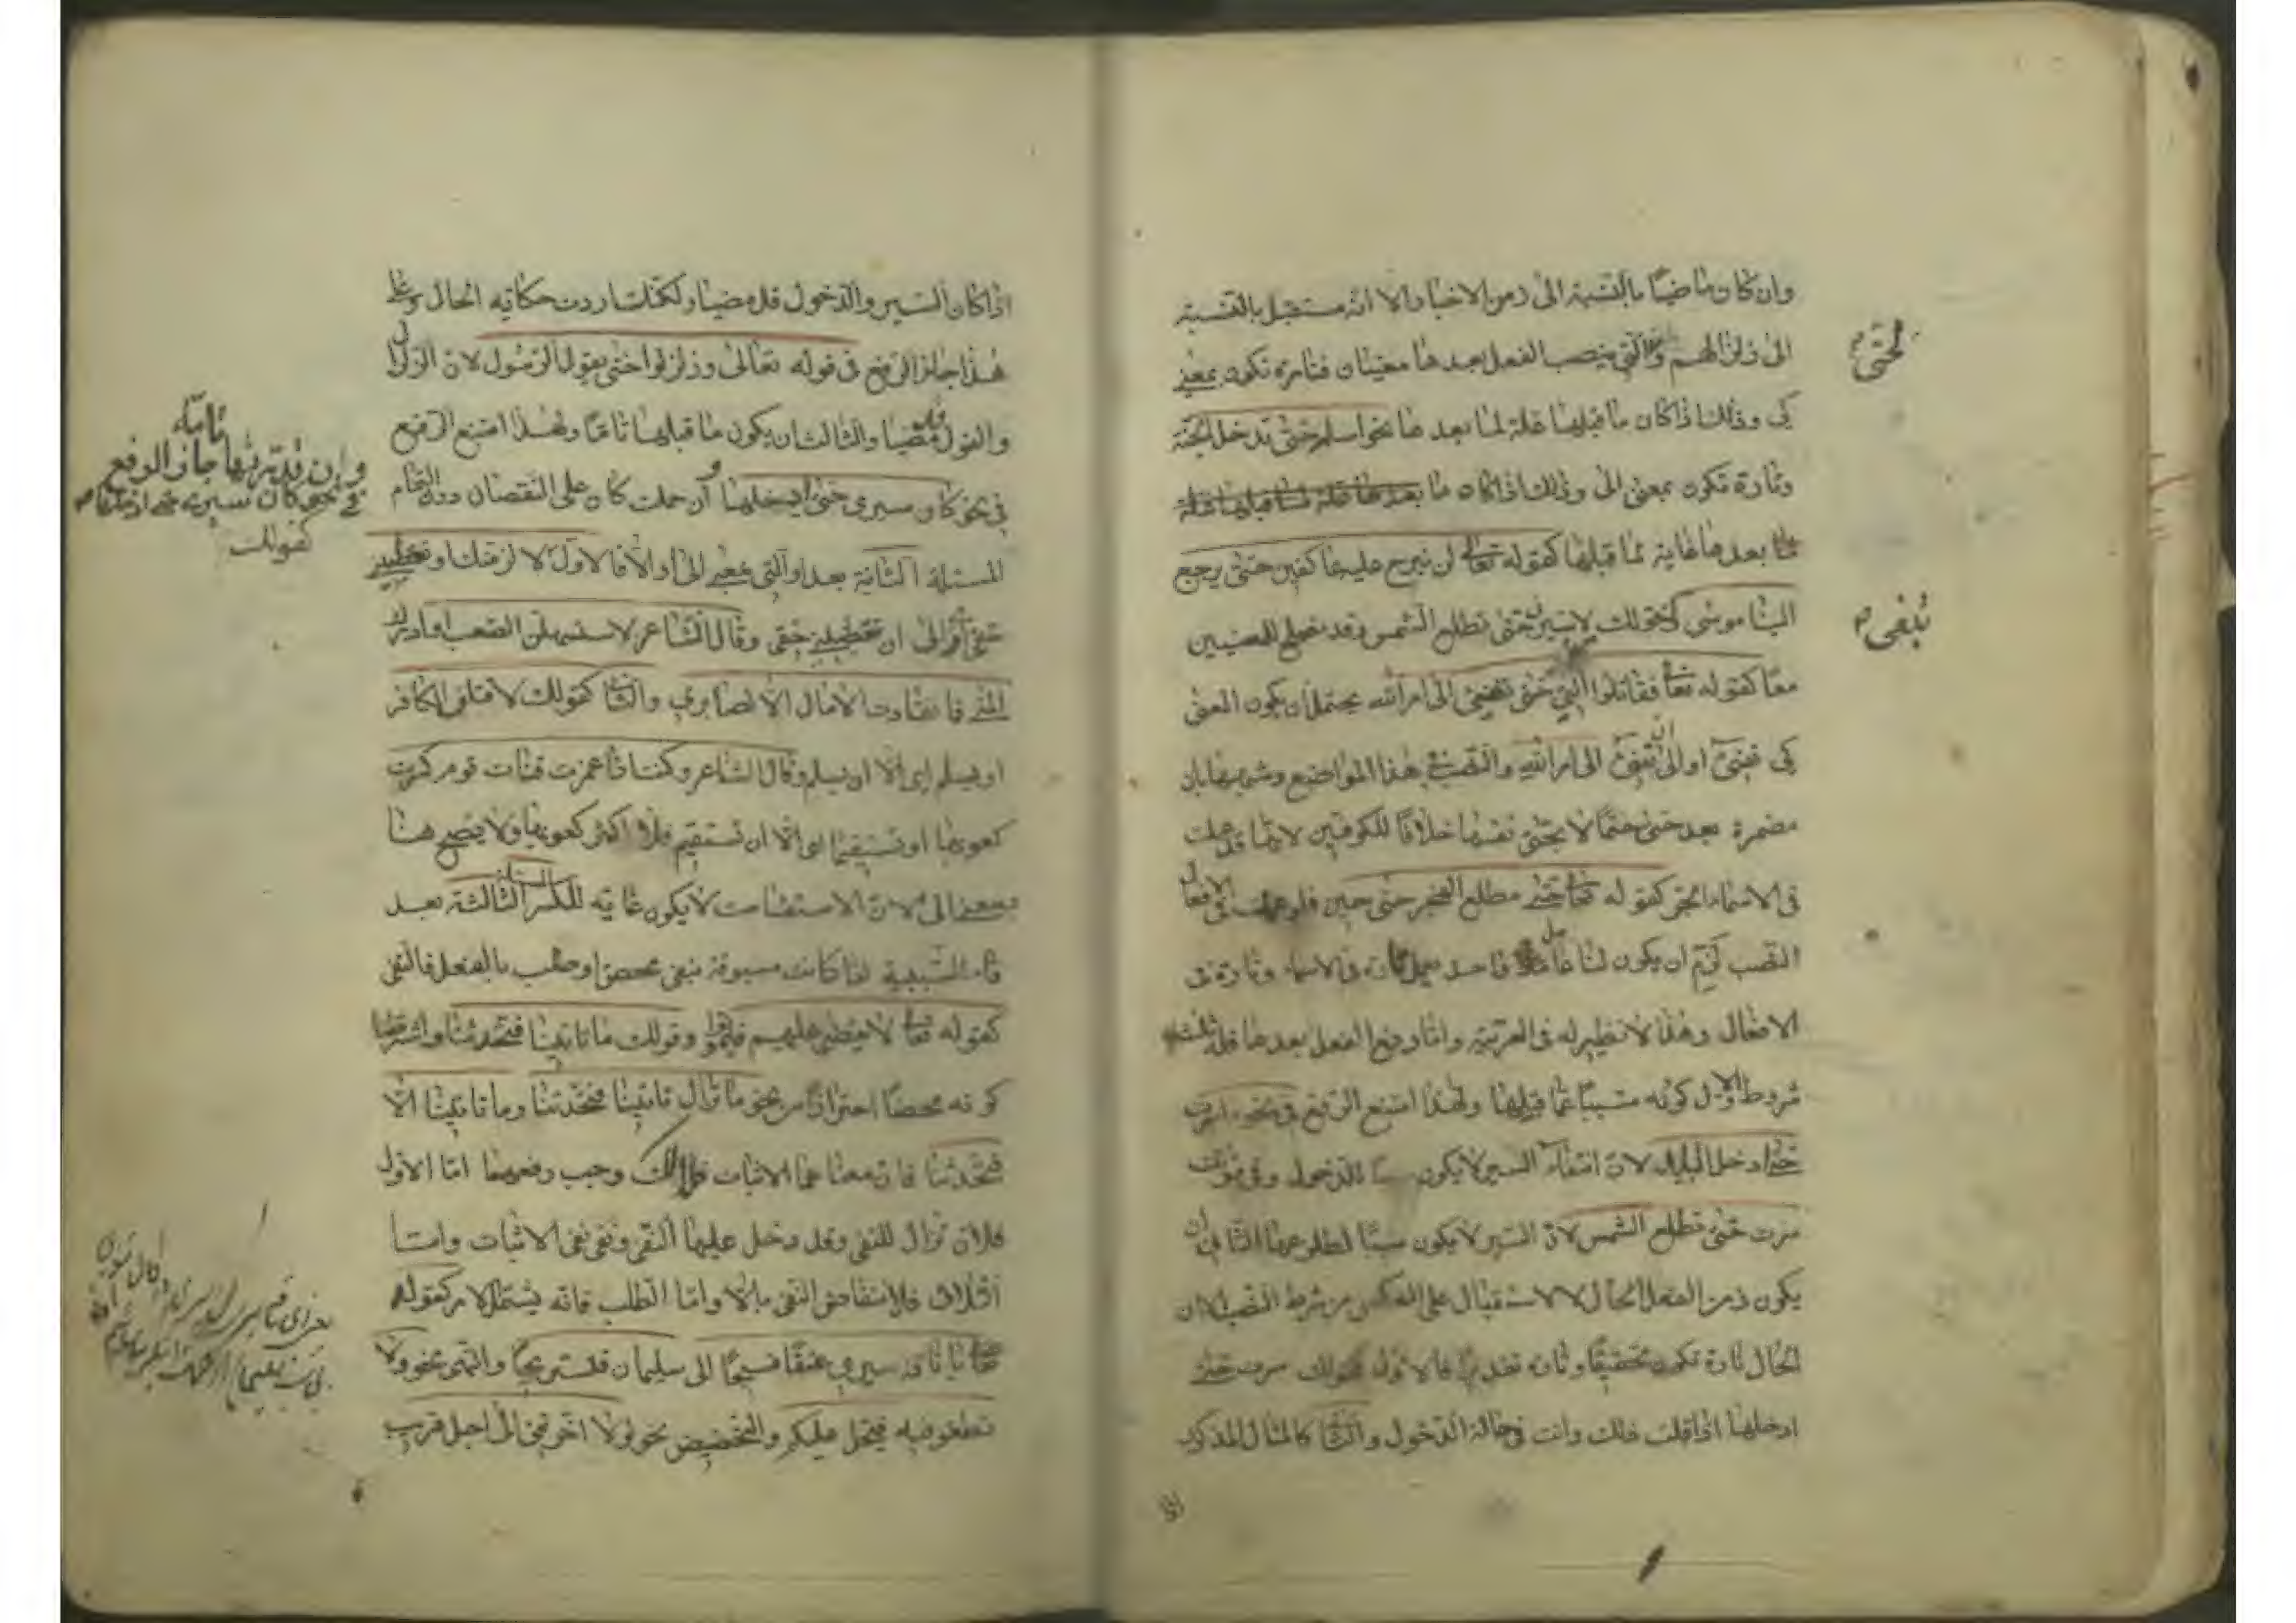 وان كان ماضيًا بالنسبة الى زمن الاخبار الا انه مستقبل بالنسبة
الى زلزالهم والتي ينصب الفعل بعدها معنيان فتارة تكون بمعنى
لحتى
كي وذلك اذا كان ما قبلها علة لما بعدها نحو اسلم حتى تدخل الجنة
وتارة تكون بمعنى الى وذلك اذا كان ما بعدها علة لما قبلها
ما بعدها غاية لما قبلها كقوله تعالى لن نبرح عليه عاكفين حتى يرجع
الينا موسى كقولك لاسيرن حتى تطلع الشمس وقد تصلح للمعنيين
تبغي
معًا كقوله تعالى فقاتلوا التي حتى تفيء الى امر الله يحتمل ان يكون المعنى
كي تفيء او الى ان تفيء الى امر الله والنصب في هذا المواضع وشبهها بان
مضمرة بعد حتى حتمًا لا بحتى نفسها خلافًا للكوفيين لانها قد عملت
في الاسماء الجر كقوله تعالى حتى مطلع الفجر حتى حين فلو عملت في الافعال
النصب لزم ان يكون لنا عامل واحد يعمل تارة في الاسماء وتارة في
الافعال وهذا لا نظير له في العربية واما رفع الفعل بعدها فله ثلثة
شروط الاول كونه مسببًا عما قبلها ولهذا امتنع الرفع في نحو ما سرت
حتى ادخل البلد لان انتفاء السير لا يكون سببًا للدخول وفي نحو
سرت حتى تطلع الشمس لان السير لا يكون سببًا لطلوعها الثاني ان
يكون زمن الفعل الحال لا الاستقبال على العكس من شرط النصب الا ان
الحال تارة تكون تحقيقًا وتارة تقديرًا فالاول كقولك سرت حتى
ادخلها اذا قلت ذلك وانت في حالة الدخول والثاني كالمثال المذكور
اذا
اذا كان السير والدخول قد مضيا ولكنك اردت حكاية الحال وعلى
هذا جاز الرفع في قوله تعالى وزلزلوا حتى يقول الرسول لان الزلزال
والقول قد مضيا والثالث ان يكون ما قبلها تامًا ولهذا امتنع الرفع
في نحو كان سيري حتى ادخلها ان حملت كان على النقصان دون التمام
تامة
وان قدرتها جاز الرفع
في نحو كان سيري حتى ادخلها
كقولك
المسئلة الثانية بعد او التي بمعنى الى او الا فالاول لالزمنك او تعطيني
حقي او الى ان تعطيني حقي وقال الشاعر لاستسهلن الصعب او ادرك
المنى فما انقادت الآمال الا لصابري والثاني كقولك لاقتلن الكافر
او يسلم اى الا ان يسلم وقال الشاعر وكنت اذا غمزت قناة قوم كسرت
كعوبها او تستقيما اى الا ان تستقيم فلا اكسر كعوبها ولا يصح هنا
بمعنى الى لان الاستقامت لا يكون غاية للكسر الثالثة بعد
فاء السببية اذا كانت مسبوقة بنفي محض او طلب بالفعل فالنفي
كقوله تعالى لا يقضى عليهم فيموتوا وقولك ما تاتينا فتحدثنا واشترطنا
كونه محضًا احترازًا من نحو ما تزال تاتينا فتحدثنا وما تاتينا الا
فتحدثنا فان معناهما الاثبات فلذلك وجب رفعهما اما الاول
فلان تزال للنفي وقد دخل عليها النفي ونفي نفي الاثبات واما
الثاني فلانتقاض النفي بالا واما الطلب فانه يشتمل الامر كقوله
يا ناق سيري عنقًا فسيحًا الى سليمان فنستريحا والنهي نحو ولا
تطغوا فيه فيحل عليكم والتخضيض نحو لولا اخرتني الى اجل قريب